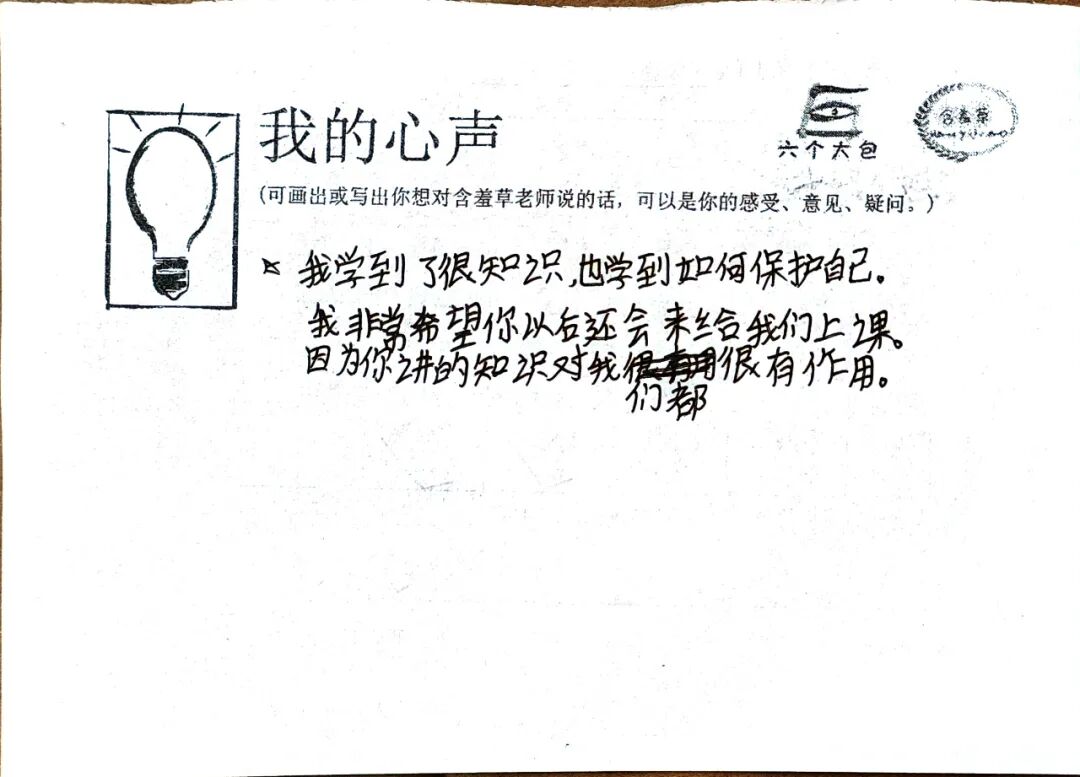 我的心声
六个大包
含羞草
(可画出或写出你想对含羞草老师说的话，可以是你的感受、意见、疑问。)
我学到了很知识,也学到如何保护自己。
我非常希望你以后还会来给我们上课。
因为你讲的知识对我们都很有作用。